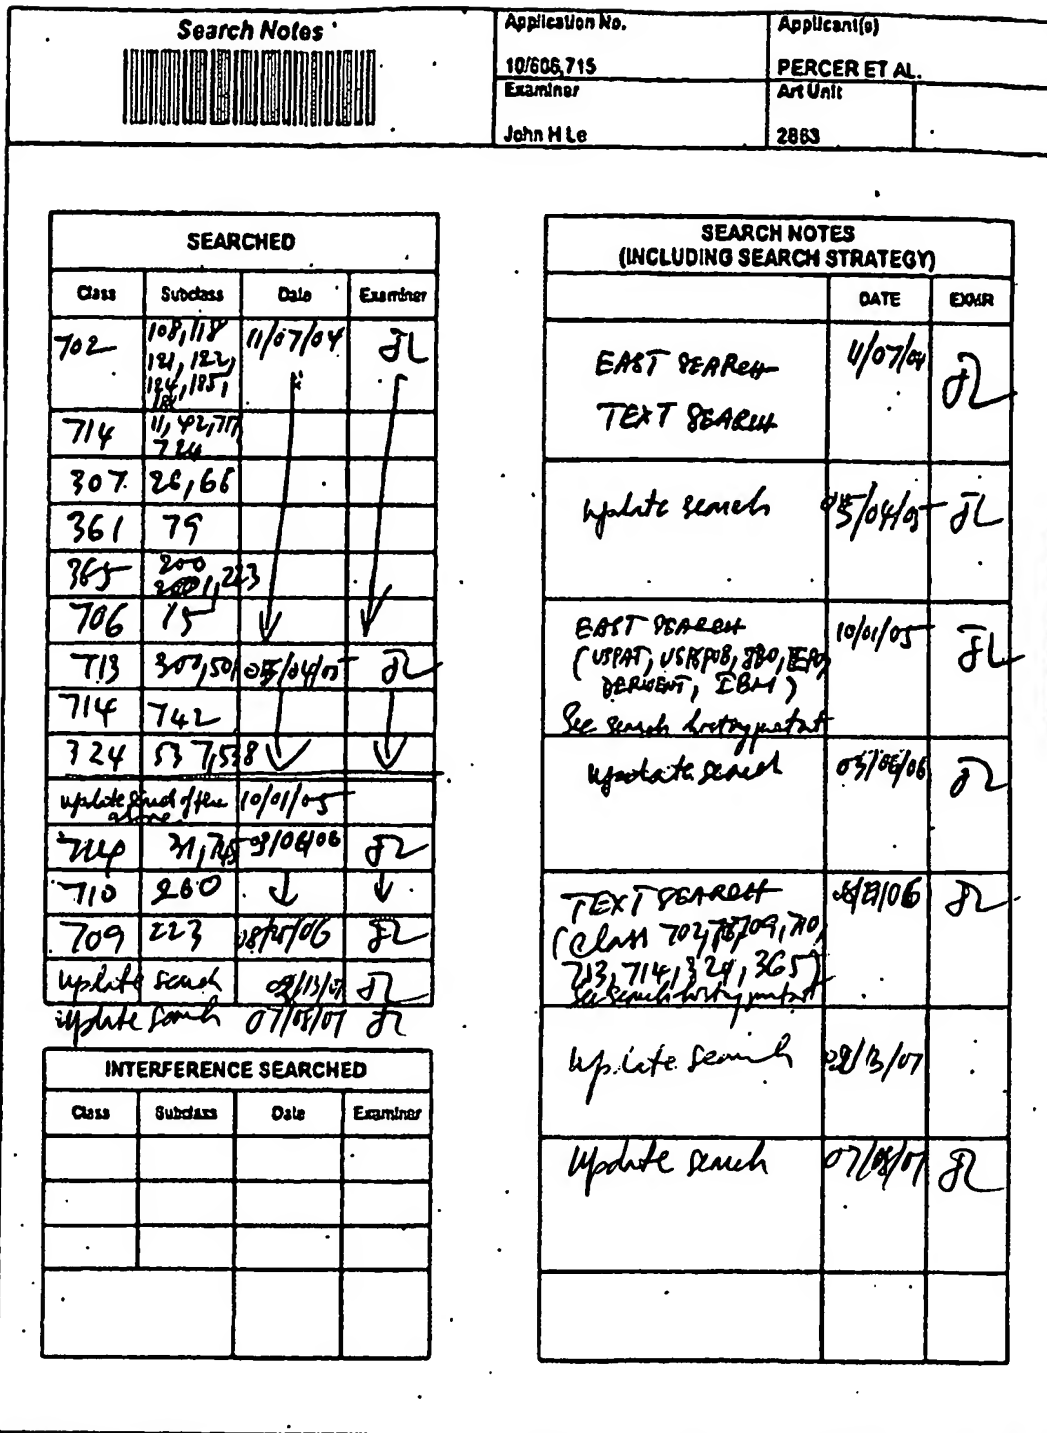 Search Notes
Application No.
Applicant(s)
10/606,715
PERCER ET AL.
Examiner
Art Unit
John H Le
2863
SEARCHED
Class Subclass Date Examiner
702 108, 118 11/07/04 JL
121, 122,
124, 185,
714 11, 42,
724
307 26, 66
361 79
365 200
223
706 15
713 300, 501 05/04/05 JL
714 742
324 537, 538
update search of the 10/01/05
above
714 31, 745 03/06/06 JL
710 260
709 223 JL
update search JL
update search 07/08/07 JL
INTERFERENCE SEARCHED
Class Subclass Date Examiner
SEARCH NOTES
(INCLUDING SEARCH STRATEGY)
DATE EXMR
EAST SEARCH 11/07/04 JL
TEXT SEARCH
update search 05/04/05 JL
EAST SEARCH 10/01/05 JL
(USPAT, USPGPUB, JPO, EPO,
DERWENT, IBM)
See search history printout
update search 03/06/06 JL
TEXT SEARCH JL
(Class 702, 709, 710,
713, 714, 324, 365)
See search history printout
update search
update search 07/08/07 JL